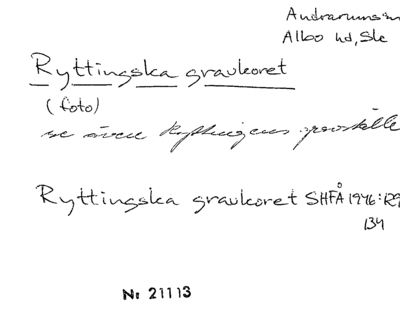 Andrarums sn
Albo hd, Sk
Ryttingska gravkoret
(foto)
se även Ryttingens gravställe
Ryttingska gravkoret SHFÅ 1946: R9
134
Nr 21113